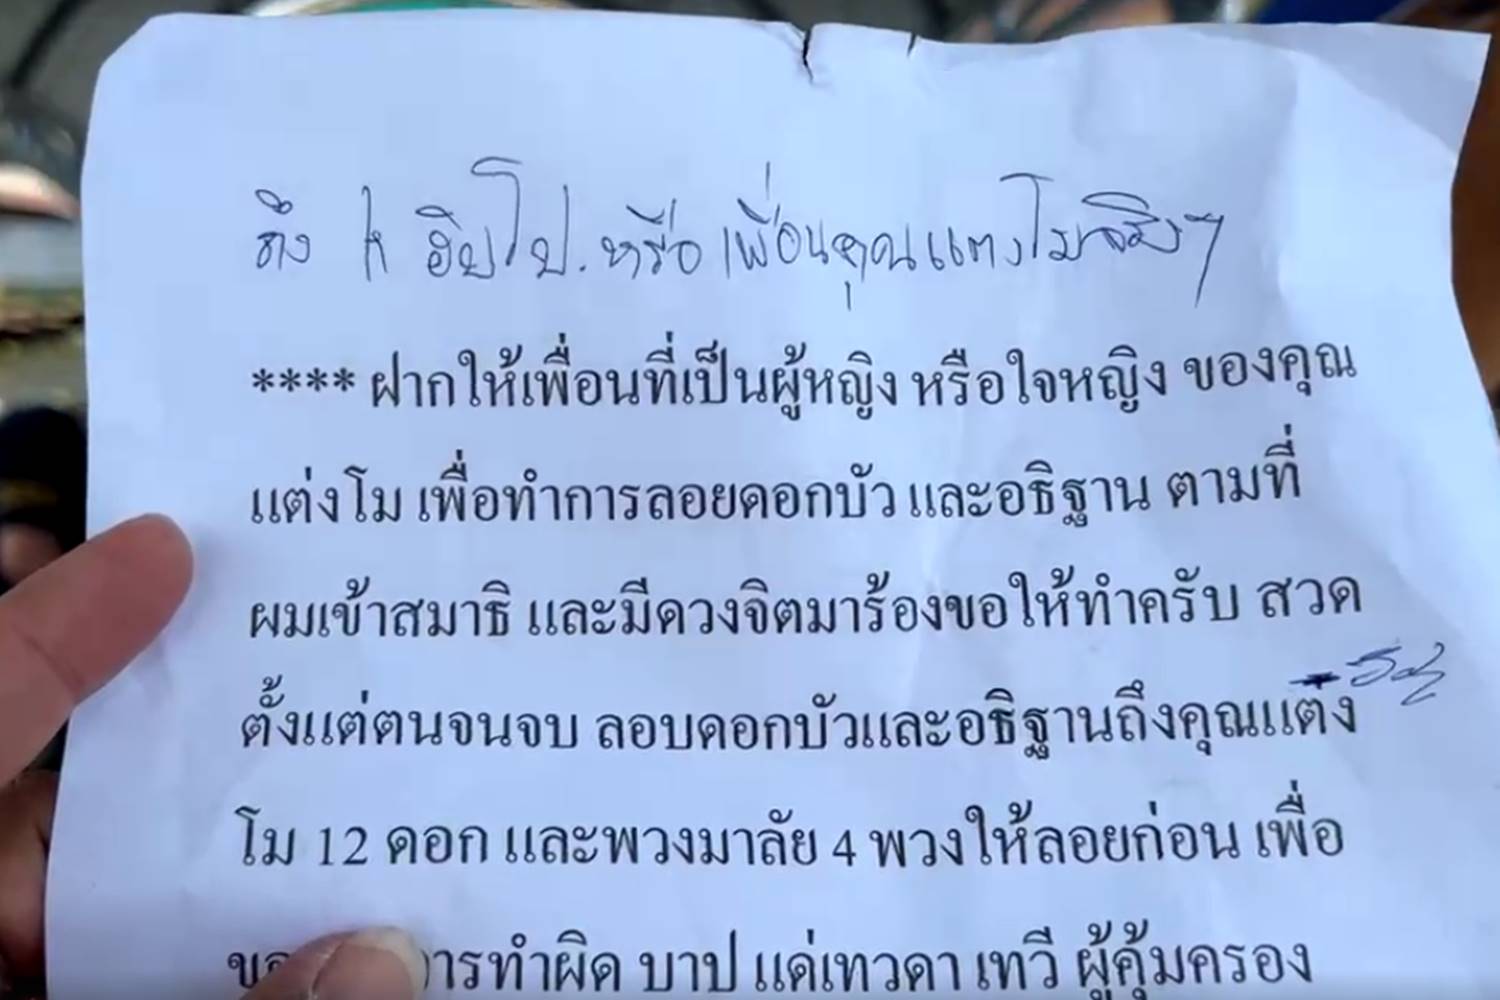 ถึง K ฮิปโป. หรือ เพื่อนคุณแตงโมจริงๆ
**** ฝากให้เพื่อนที่เป็นผู้หญิง หรือใจหญิง ของคุณ
แต่งโม เพื่อทำการลอยดอกบัว และอธิฐาน ตามที่
ผมเข้าสมาธิ และมีดวงจิตมาร้องขอให้ทำครับ สวด
ตั้งแต่ตนจนจบ ลอบดอกบัวและอธิฐานถึงคุณแต่ง
โม 12 ดอก และพวงมาลัย 4 พวงให้ลอยก่อน เพื่อ
การทำผิด บาป แด่เทวดา เทวี ผู้คุ้มครอง